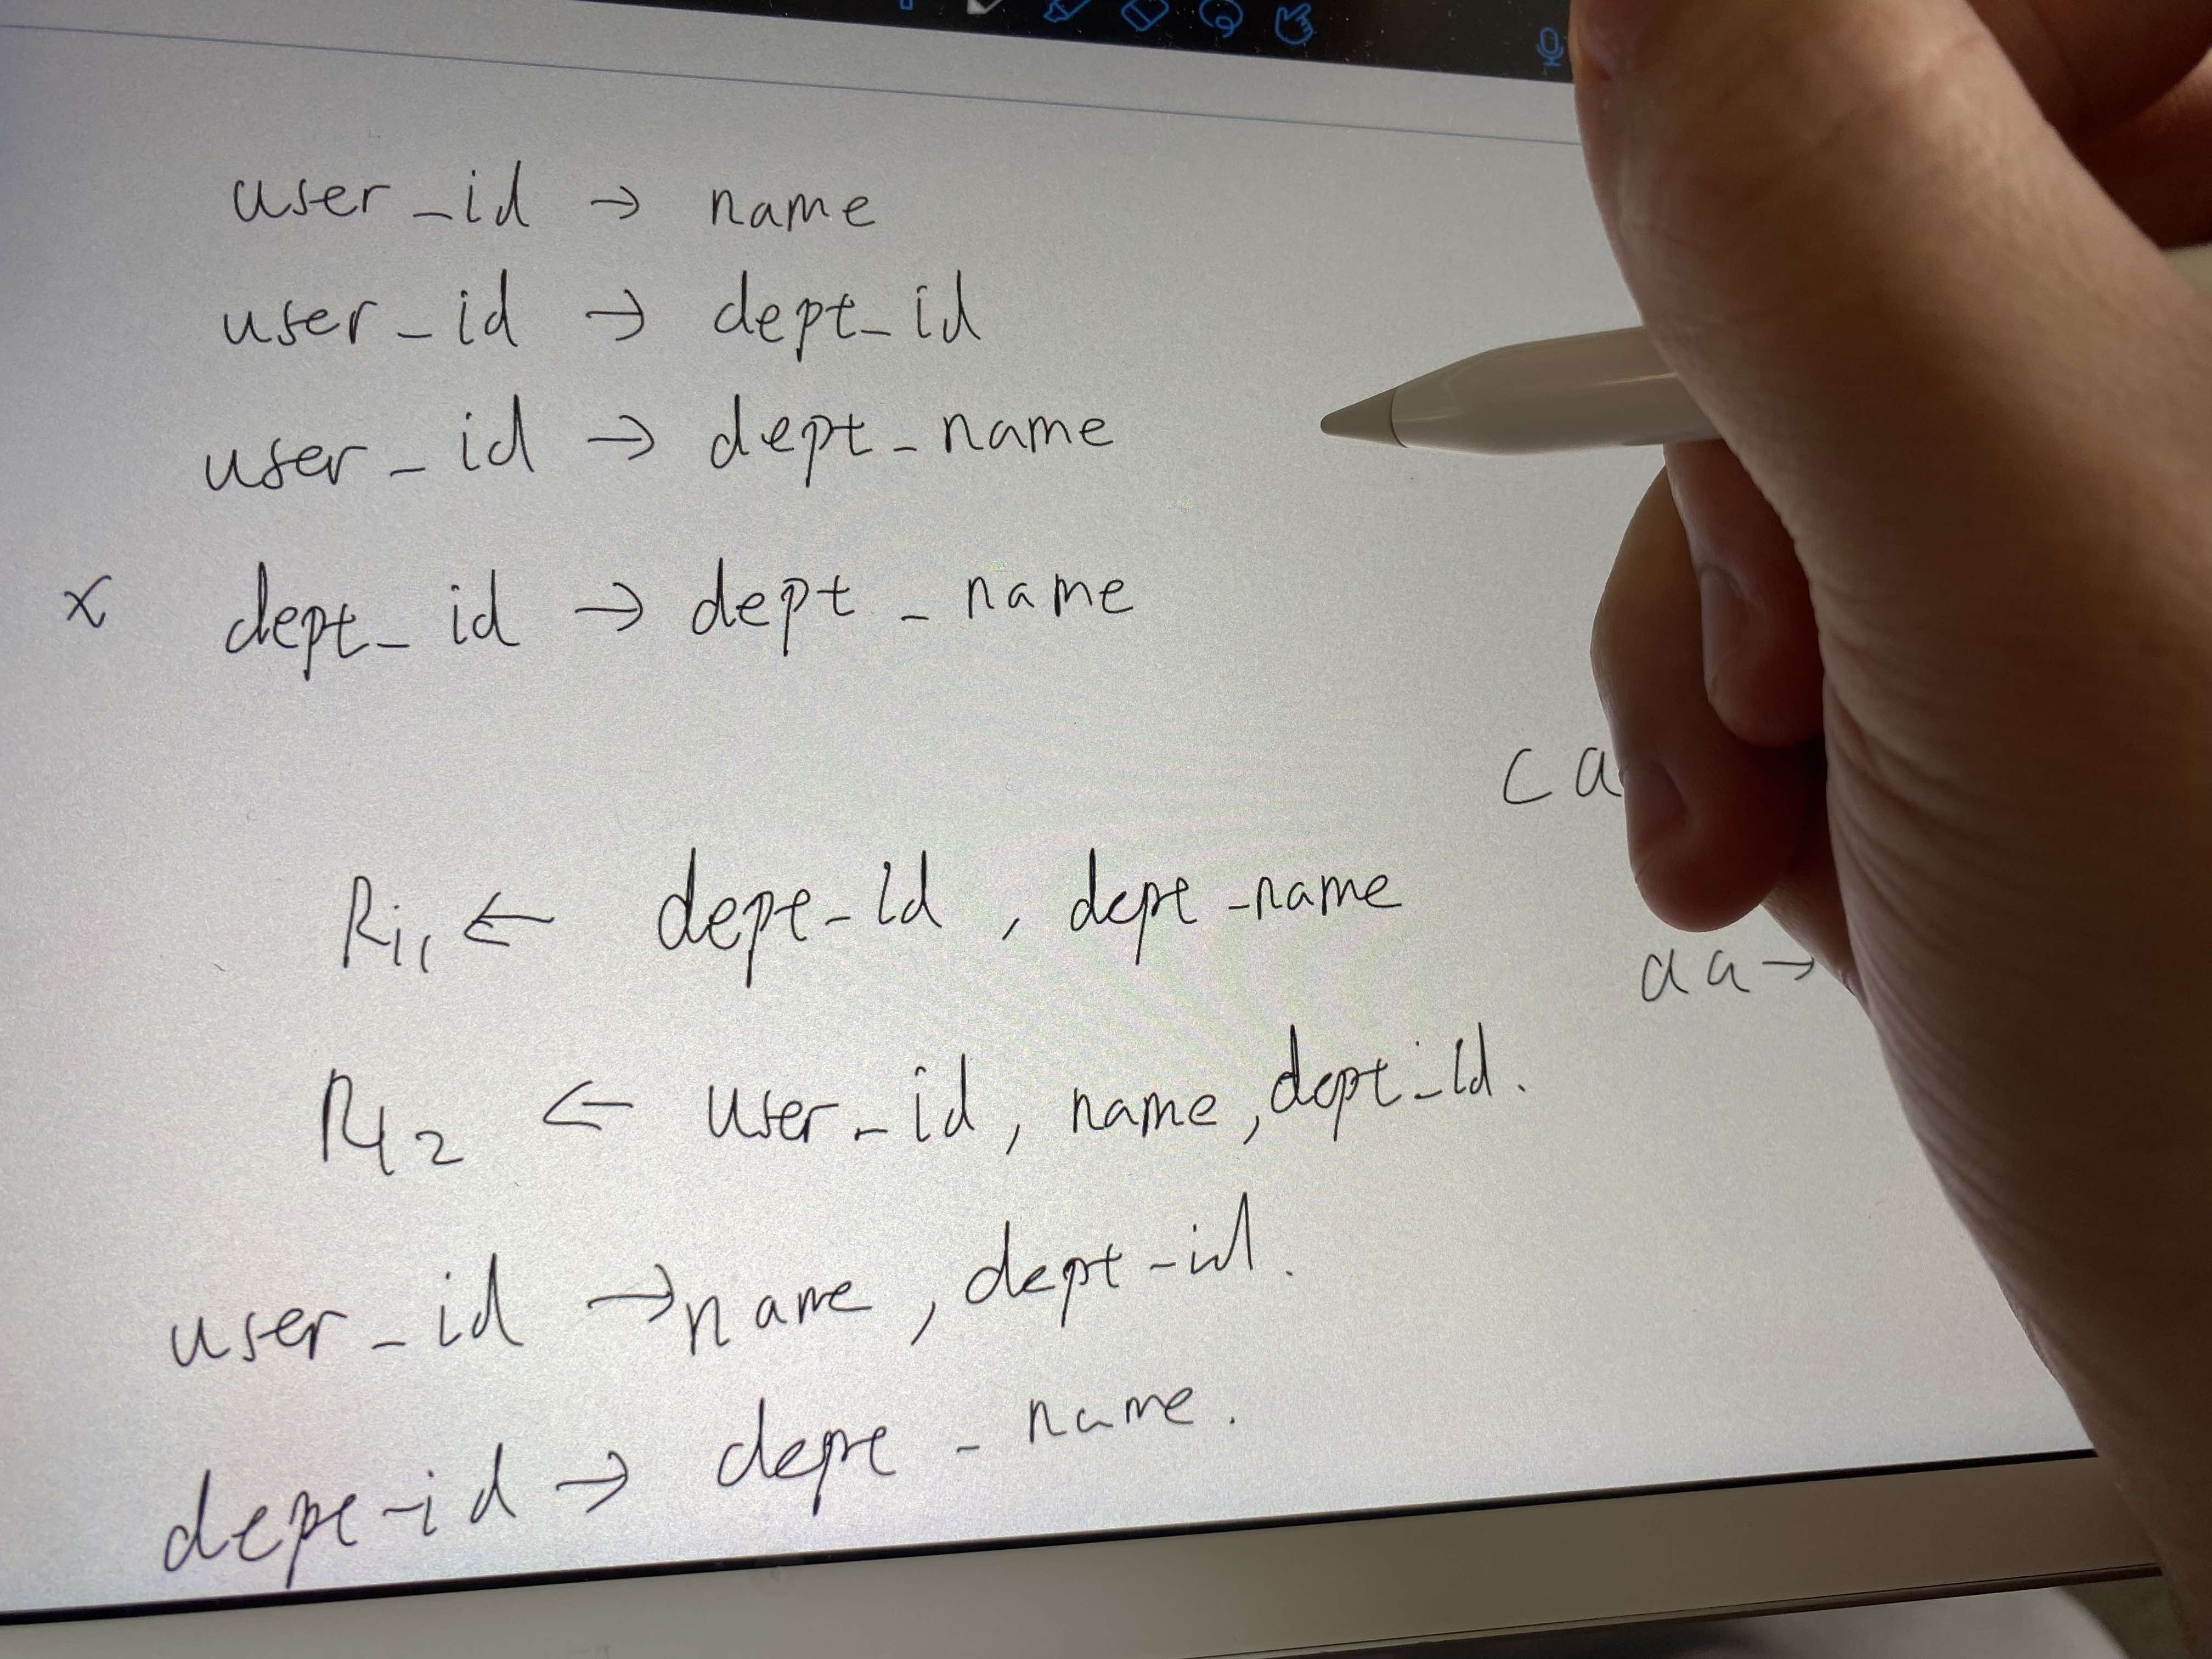 user_id → name
user_id → dept_id
user_id → dept_name
x dept_id → dept_name
ca
Ri1 ← dept-id, dept-name
aa→
Ri2 ← user_id, name, dept_id.
user_id → name, dept-id.
dept-id → dept_name.